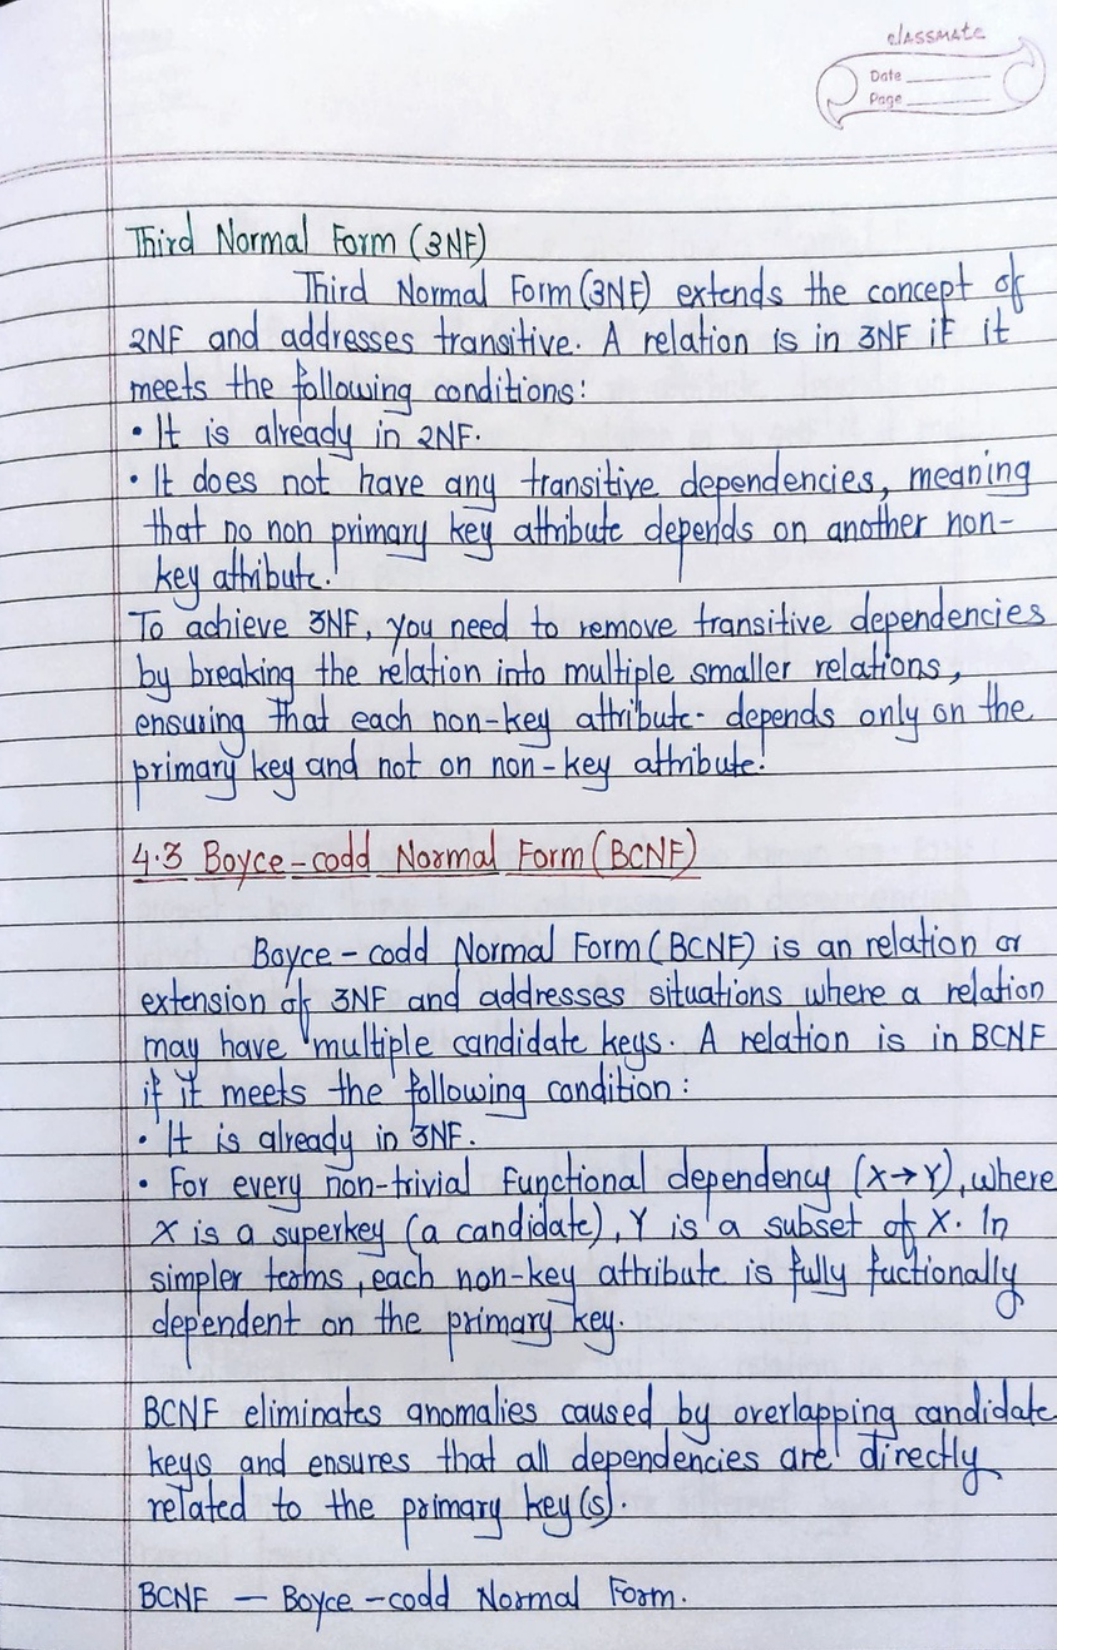 classmate
Date
Page
Third Normal Form (3NF)
Third Normal Form (3NF) extends the concept of
2NF and addresses transitive. A relation is in 3NF if it
meets the following conditions:
• It is already in 2NF.
• It does not have any transitive dependencies, meaning
that no non primary key attribute depends on another non-
key attribute.
To achieve 3NF, you need to remove transitive dependencies
by breaking the relation into multiple smaller relations,
ensuring that each non-key attribute depends only on the
primary key and not on non-key attribute.
4.3 Boyce-codd Normal Form (BCNF)
Boyce-codd Normal Form (BCNF) is an relation or
extension of 3NF and addresses situations where a relation
may have multiple candidate keys. A relation is in BCNF
if it meets the following condition:
• It is already in 3NF.
• For every non-trivial functional dependency (X→Y), where
X is a superkey (a candidate), Y is a subset of X. In
simpler teams, each non-key attribute is fully fuctionally
dependent on the primary key.
BCNF eliminates anomalies caused by overlapping candidate
keys and ensures that all dependencies are directly
related to the primary key(s).
BCNF — Boyce-codd Normal Form.